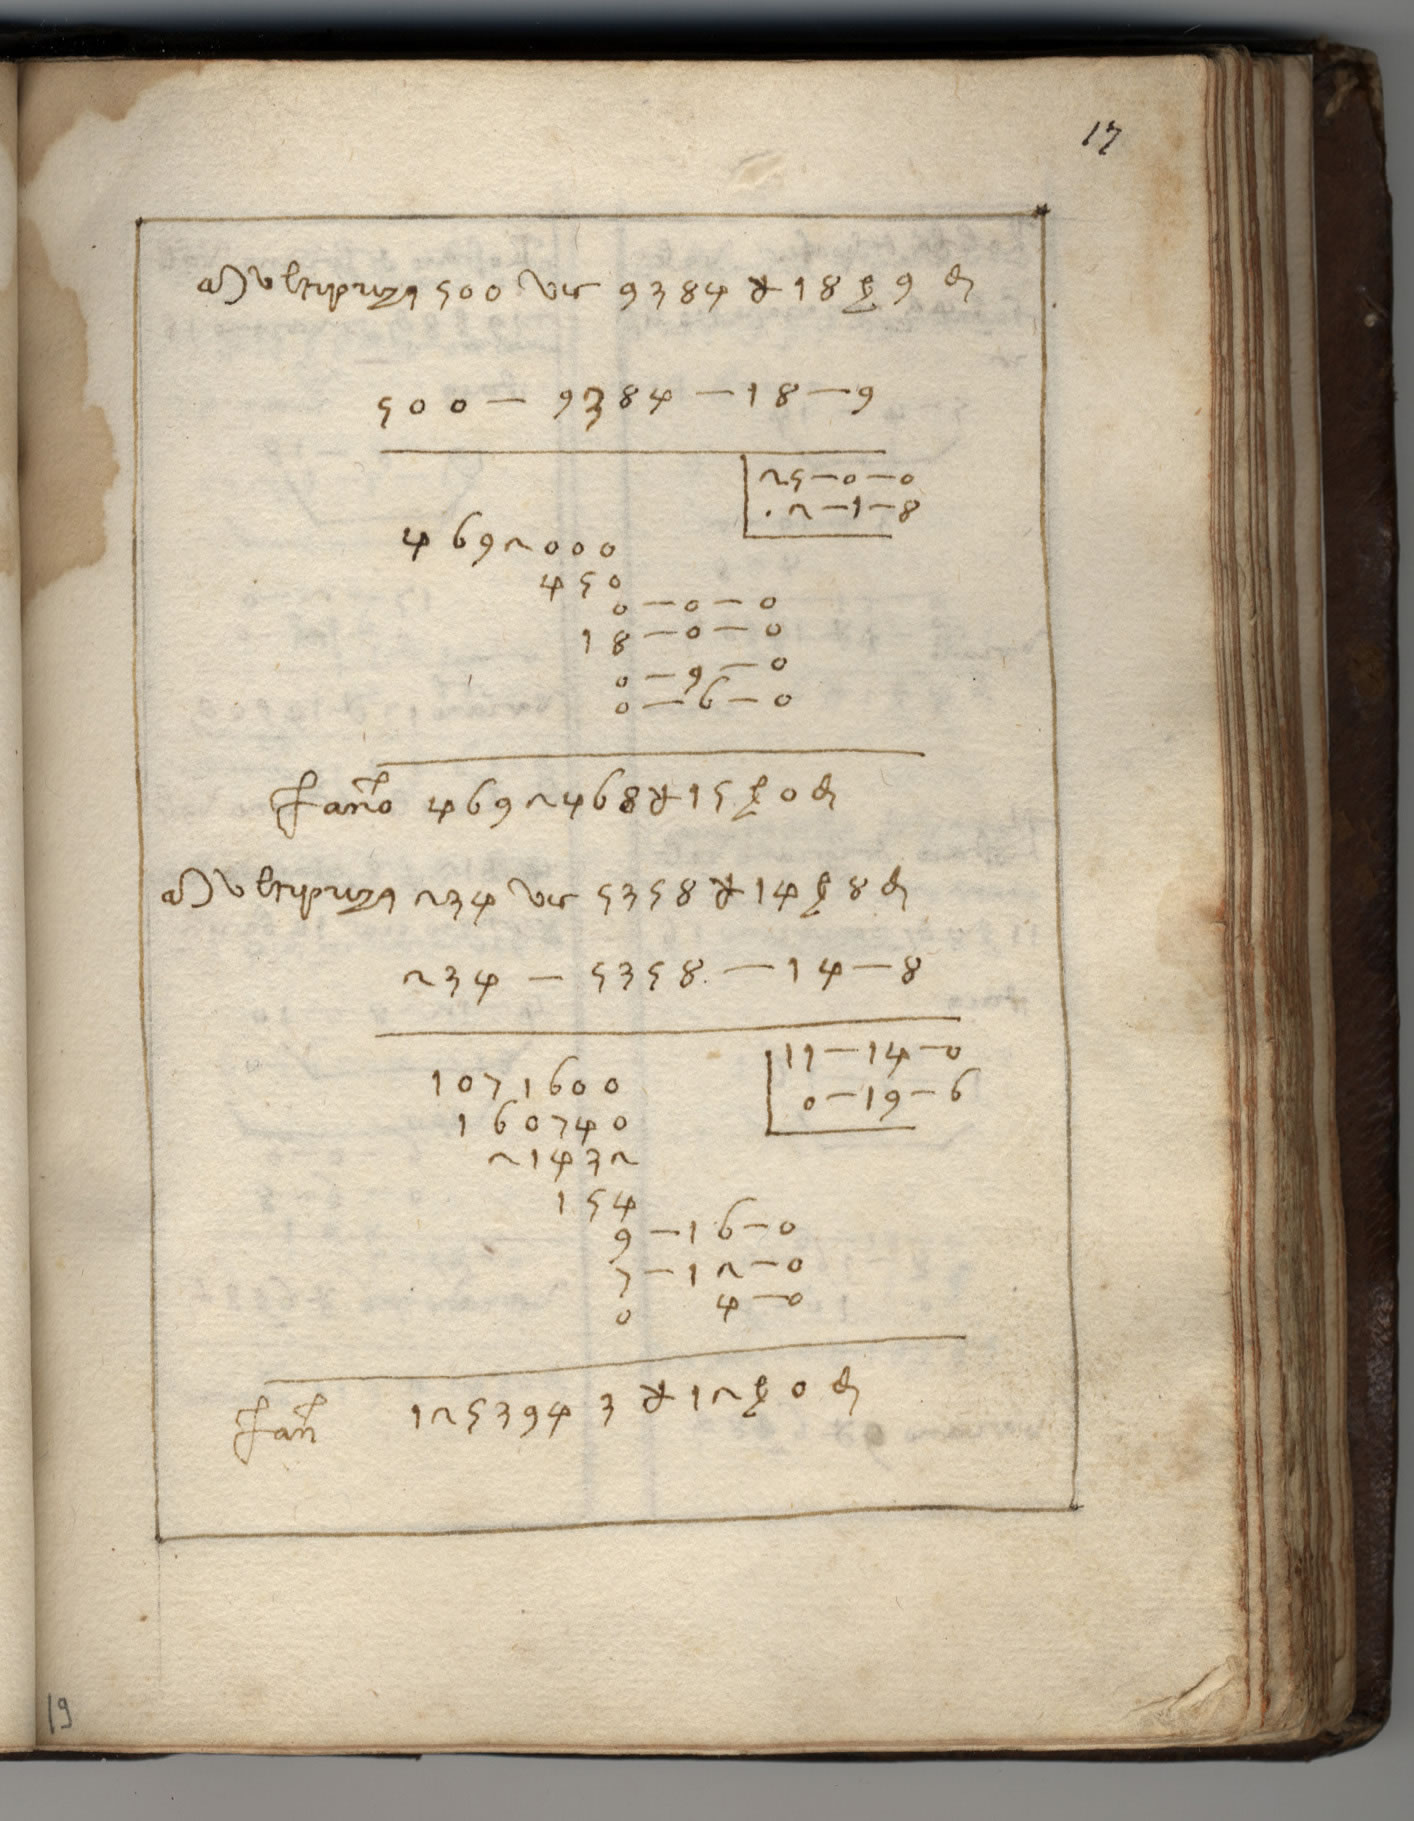 17
Multipriza 500 vie 9384 ₰ 18 ẞ 9 ₰
500 — 9384 — 18 — 9
25 — 0 — 0
. 2 — 1 — 8
4692000
450
0 — 0 — 0
18 — 0 — 0
0 — 9 — 0
0 — 6 — 0
fano 4692468 15 0
Multipriza 234 vie 5358 14 8
234 — 5358 . — 14 — 8
11 — 14 — 0
0 — 19 — 6
1071600
160740
21432
154
9 — 16 — 0
7 — 12 — 0
0 4 — 0
fan 1253943 12 0
19